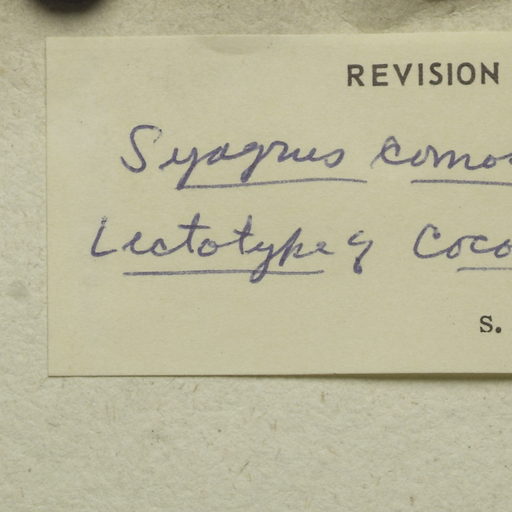 REVISION
Syagrus comos
Lectotype of Coco
S.